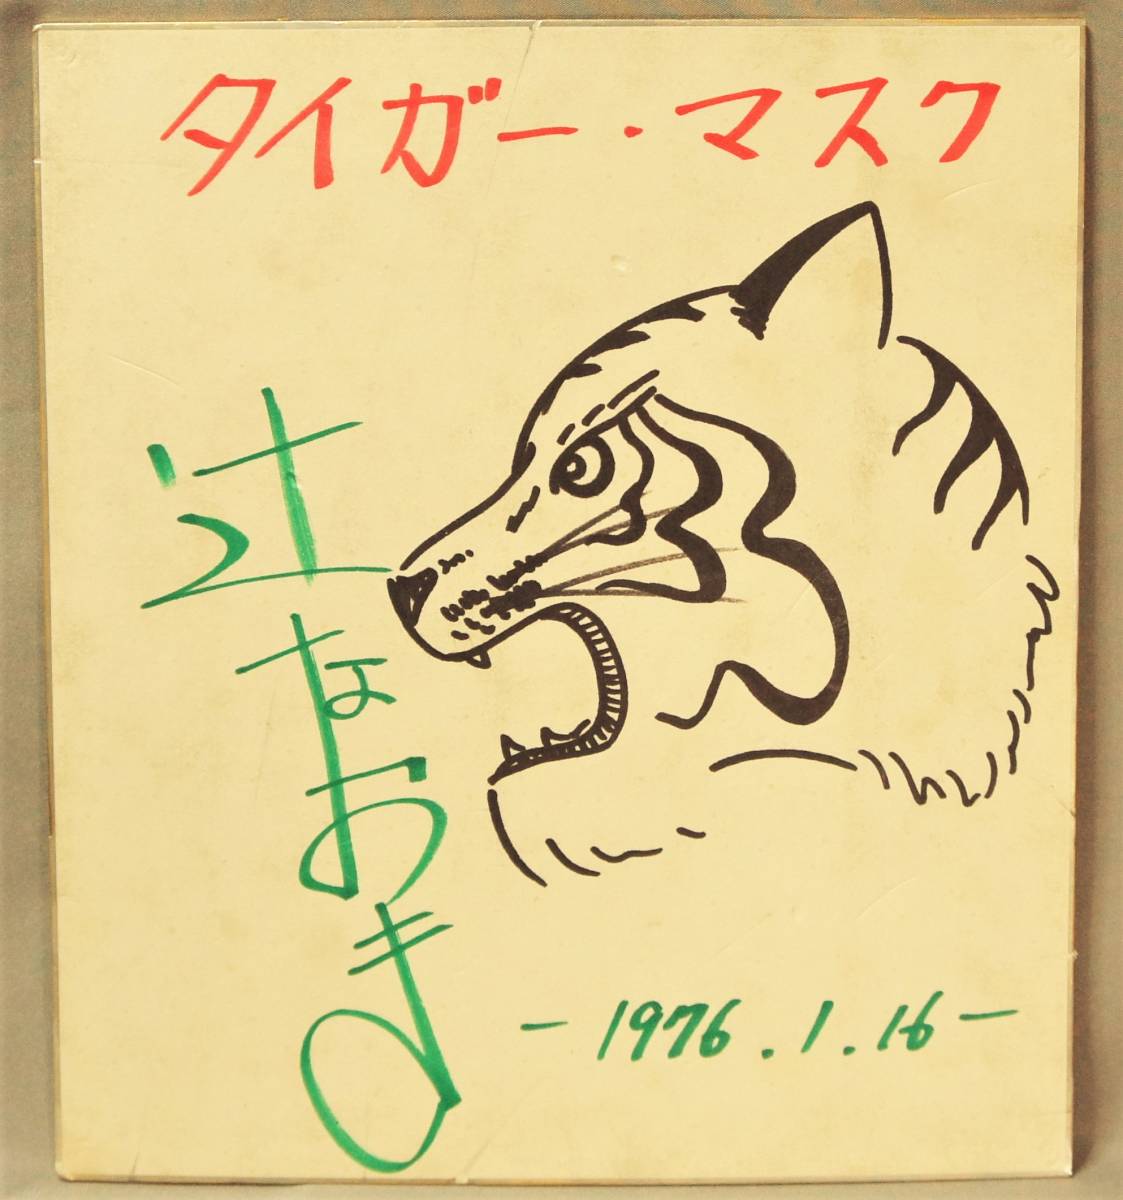 タイガー・マスク
辻なおき
-1976.1.16-